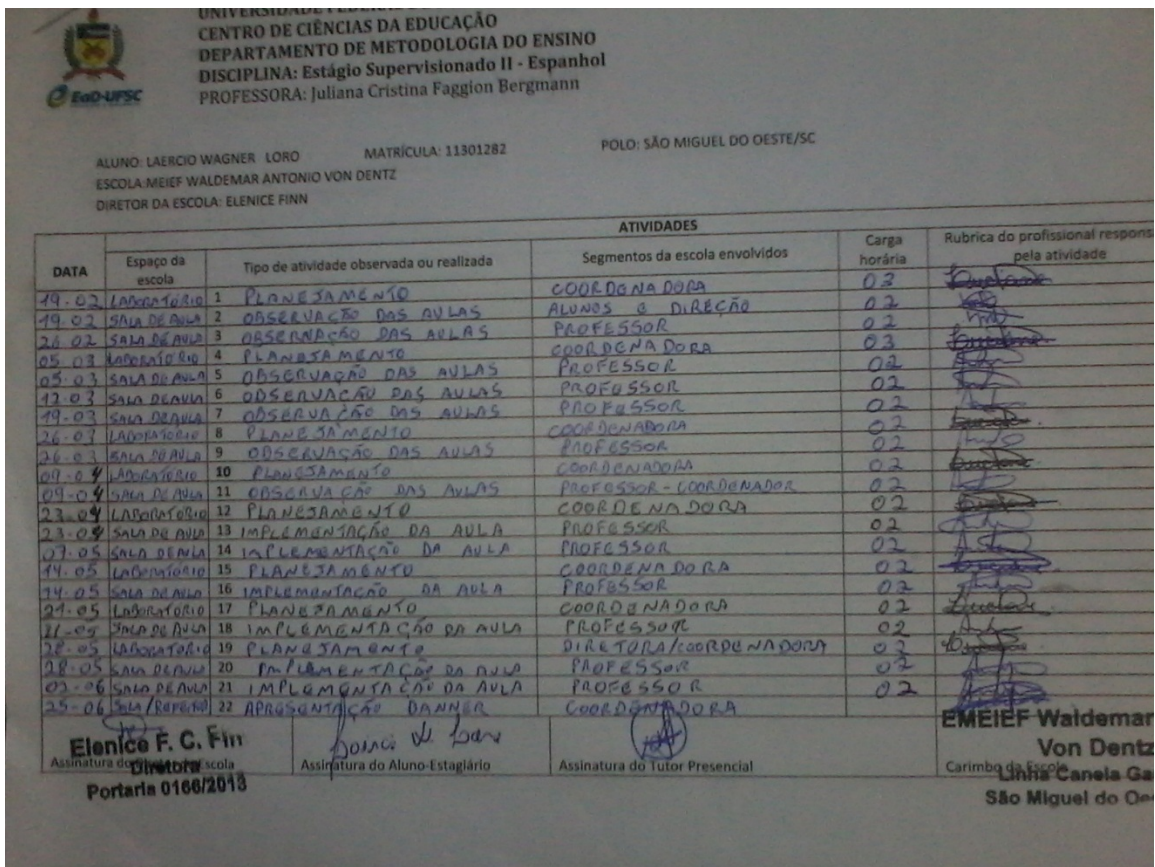 UNIVERSIDADE FEDERAL
CENTRO DE CIÊNCIAS DA EDUCAÇÃO
DEPARTAMENTO DE METODOLOGIA DO ENSINO
DISCIPLINA: Estágio Supervisionado II - Espanhol
PROFESSORA: Juliana Cristina Faggion Bergmann
EaD-UFSC
ALUNO: LAERCIO WAGNER LORO MATRÍCULA: 11301282 POLO: SÃO MIGUEL DO OESTE/SC
ESCOLA:MEIEF WALDEMAR ANTONIO VON DENTZ
DIRETOR DA ESCOLA: ELENICE FINN
ATIVIDADES
DATA Espaço da escola Tipo de atividade observada ou realizada Segmentos da escola envolvidos Carga horária Rubrica do profissional respons pela atividade
19-02 LABORATÓRIO 1 PLANEJAMENTO COORDENADORA 03
19-02 SALA DE AULA 2 OBSERVAÇÃO DAS AULAS ALUNOS e DIREÇÃO 02
26-02 SALA DE AULA 3 OBSERVAÇÃO DAS AULAS PROFESSOR 02
05-03 LABORATÓRIO 4 PLANEJAMENTO COORDENADORA 03
05-03 SALA DE AULA 5 OBSERVAÇÃO DAS AULAS PROFESSOR 02
12-03 SALA DE AULA 6 OBSERVAÇÃO DAS AULAS PROFESSOR 02
19-03 SALA DE AULA 7 OBSERVAÇÃO DAS AULAS PROFESSOR 02
26-03 LABORATÓRIO 8 PLANEJAMENTO COORDENADORA 02
26-03 SALA DE AULA 9 OBSERVAÇÃO DAS AULAS PROFESSOR 02
09-04 LABORATÓRIO 10 PLANEJAMENTO COORDENADORA 02
09-04 SALA DE AULA 11 OBSERVAÇÃO DAS AULAS PROFESSOR-COORDENADOR 02
23-04 LABORATÓRIO 12 PLANEJAMENTO COORDENADORA 02
23-04 SALA DE AULA 13 IMPLEMENTAÇÃO DA AULA PROFESSOR 02
07-05 SALA DE AULA 14 IMPLEMENTAÇÃO DA AULA PROFESSOR 02
14-05 LABORATÓRIO 15 PLANEJAMENTO COORDENADORA 02
14-05 SALA DE AULA 16 IMPLEMENTAÇÃO DA AULA PROFESSOR 02
21-05 LABORATÓRIO 17 PLANEJAMENTO COORDENADORA 02
21-05 SALA DE AULA 18 IMPLEMENTAÇÃO DA AULA PROFESSOR 02
28-05 LABORATÓRIO 19 PLANEJAMENTO DIRETORA/COORDENADORA 02
28-05 SALA DE AULA 20 IMPLEMENTAÇÃO DA AULA PROFESSOR 02
SALA DE AULA 21 IMPLEMENTAÇÃO DA AULA PROFESSOR 02
25-06 22 APRESENTAÇÃO BANNER COORDENADORA
Elenice F. C. Fin
Assinatura do Escola Assinatura do Aluno-Estagiário Assinatura do Tutor Presencial Carimbo da Escola
Diretora
Portaria 0166/2013
EMEIEF Waldemar
Von Dentz
Linha Canela Ga
São Miguel do Oe